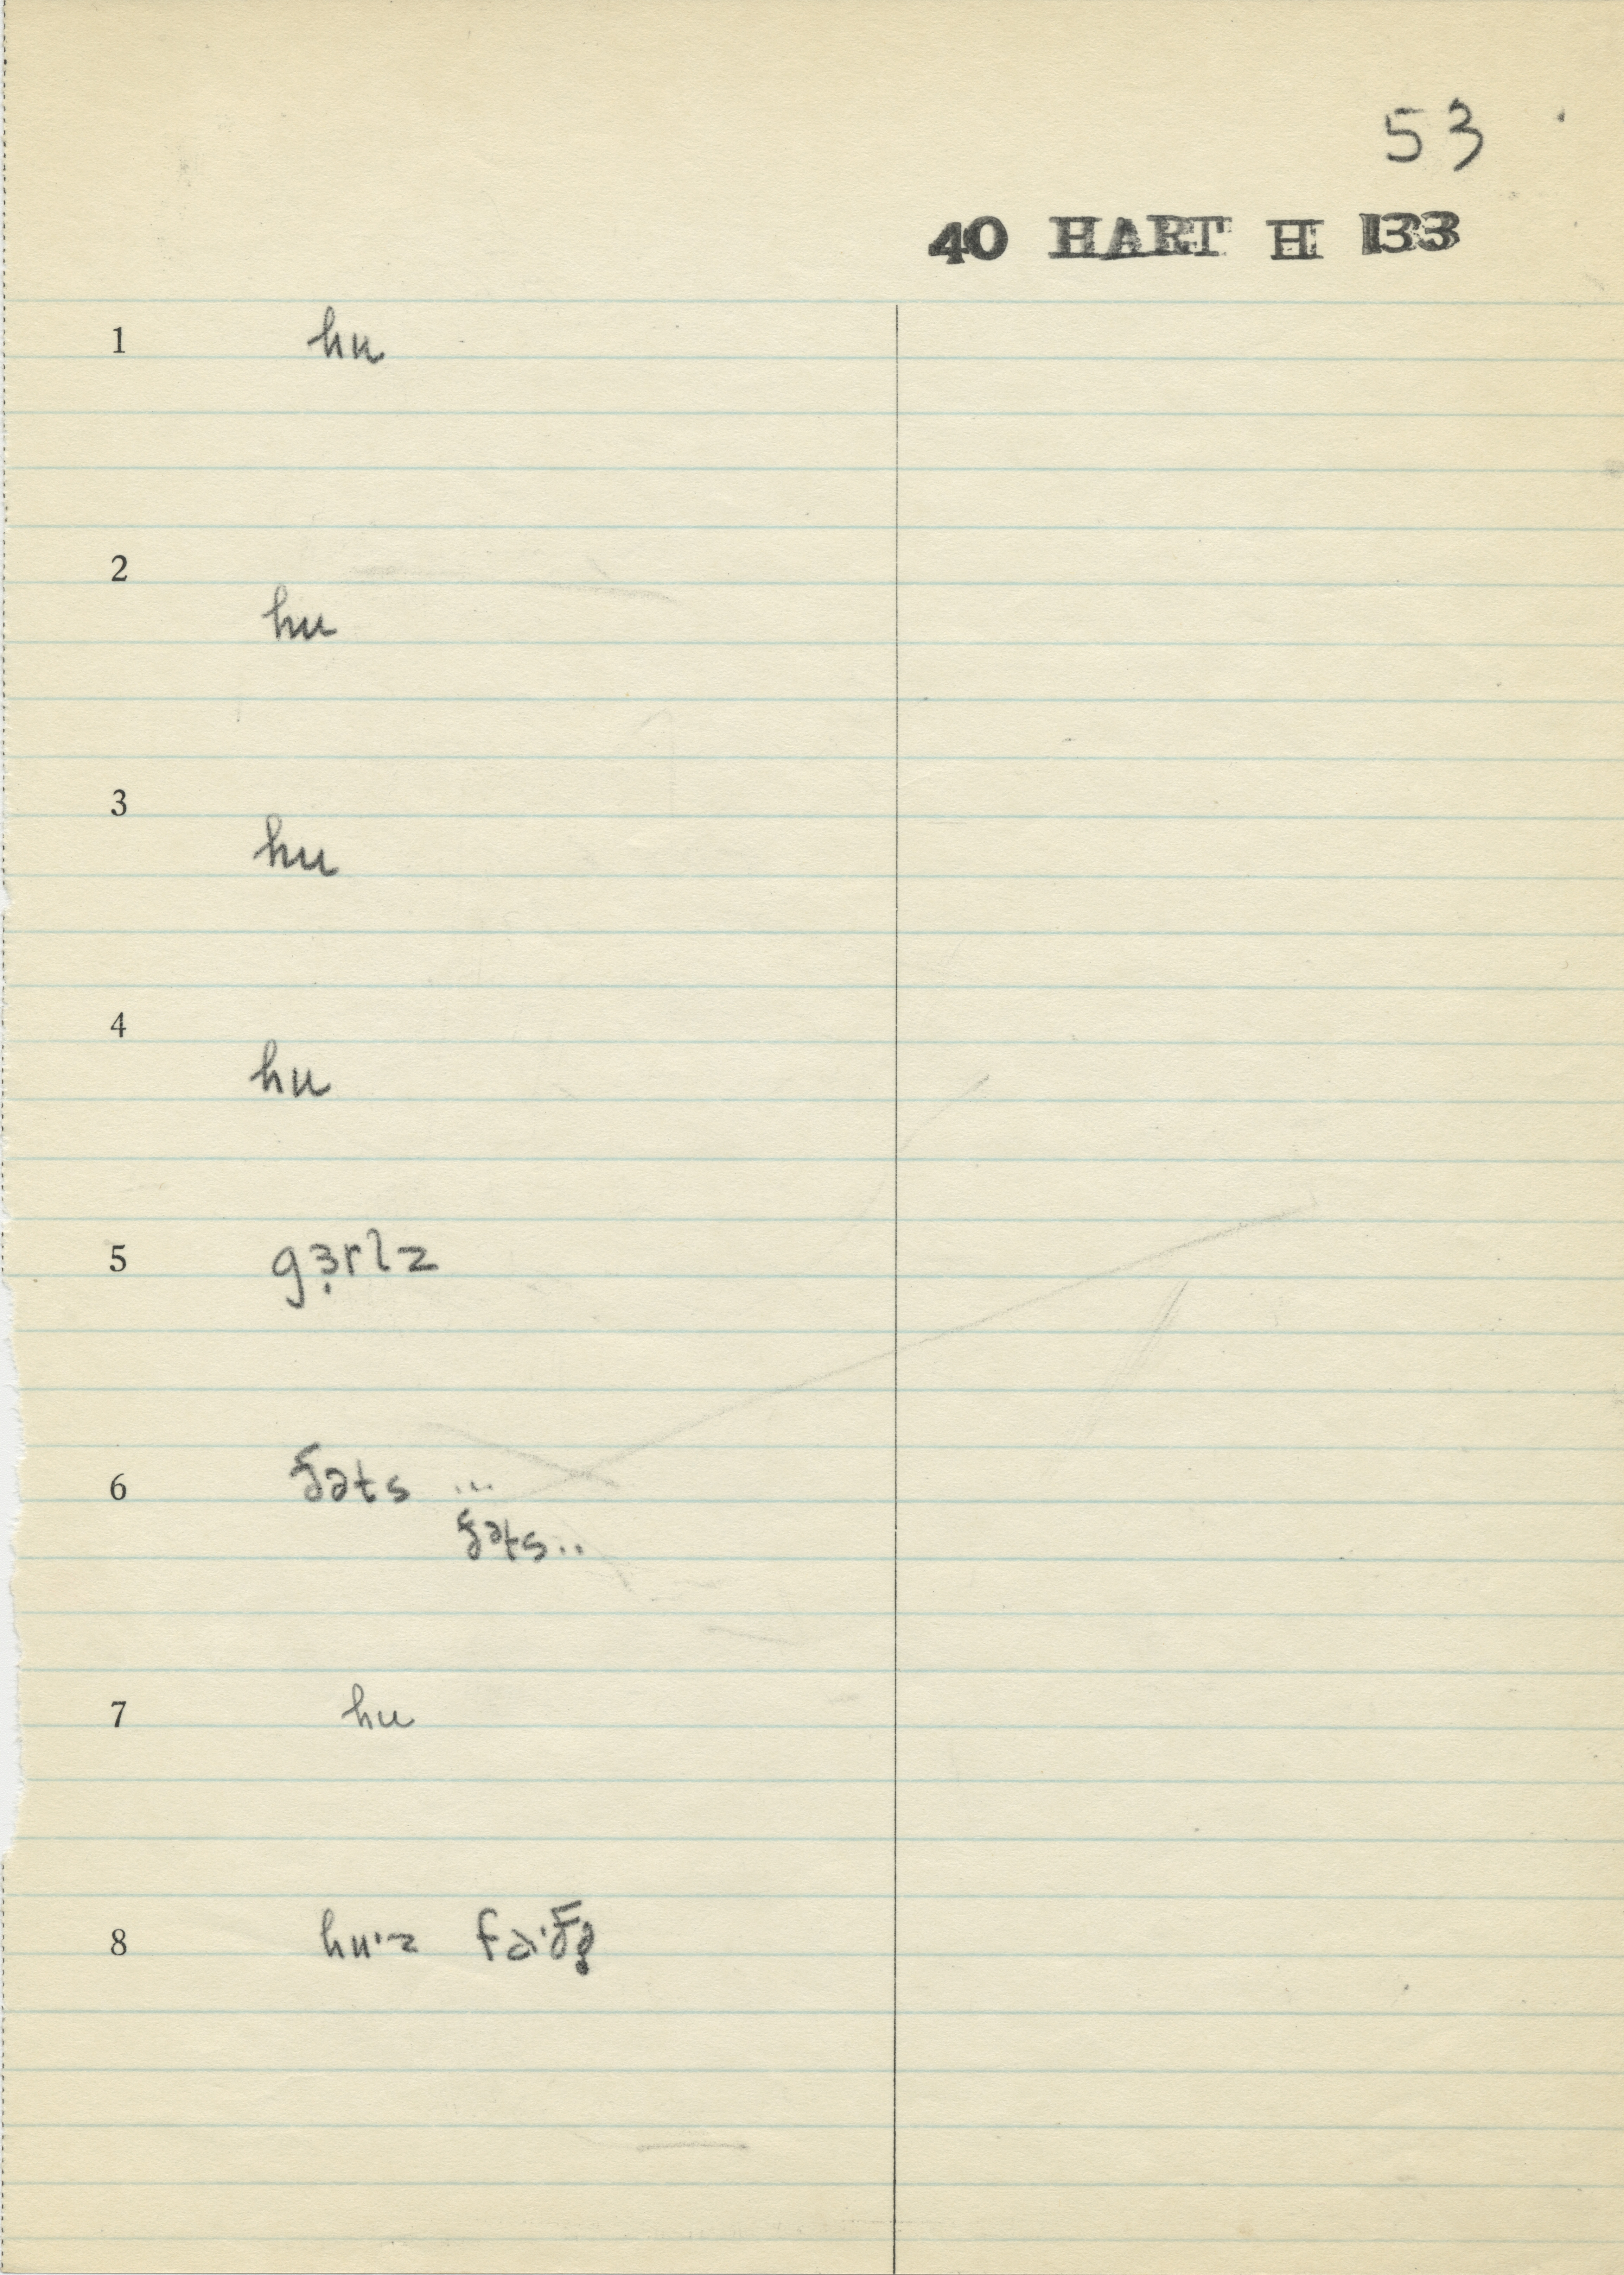 53
40 HART H 133
1 hu
2
hu
3
hu
4
hu
5 gɜ̣rlz
6 ðəts ...
ðəts..
7 hu
8 hu·z